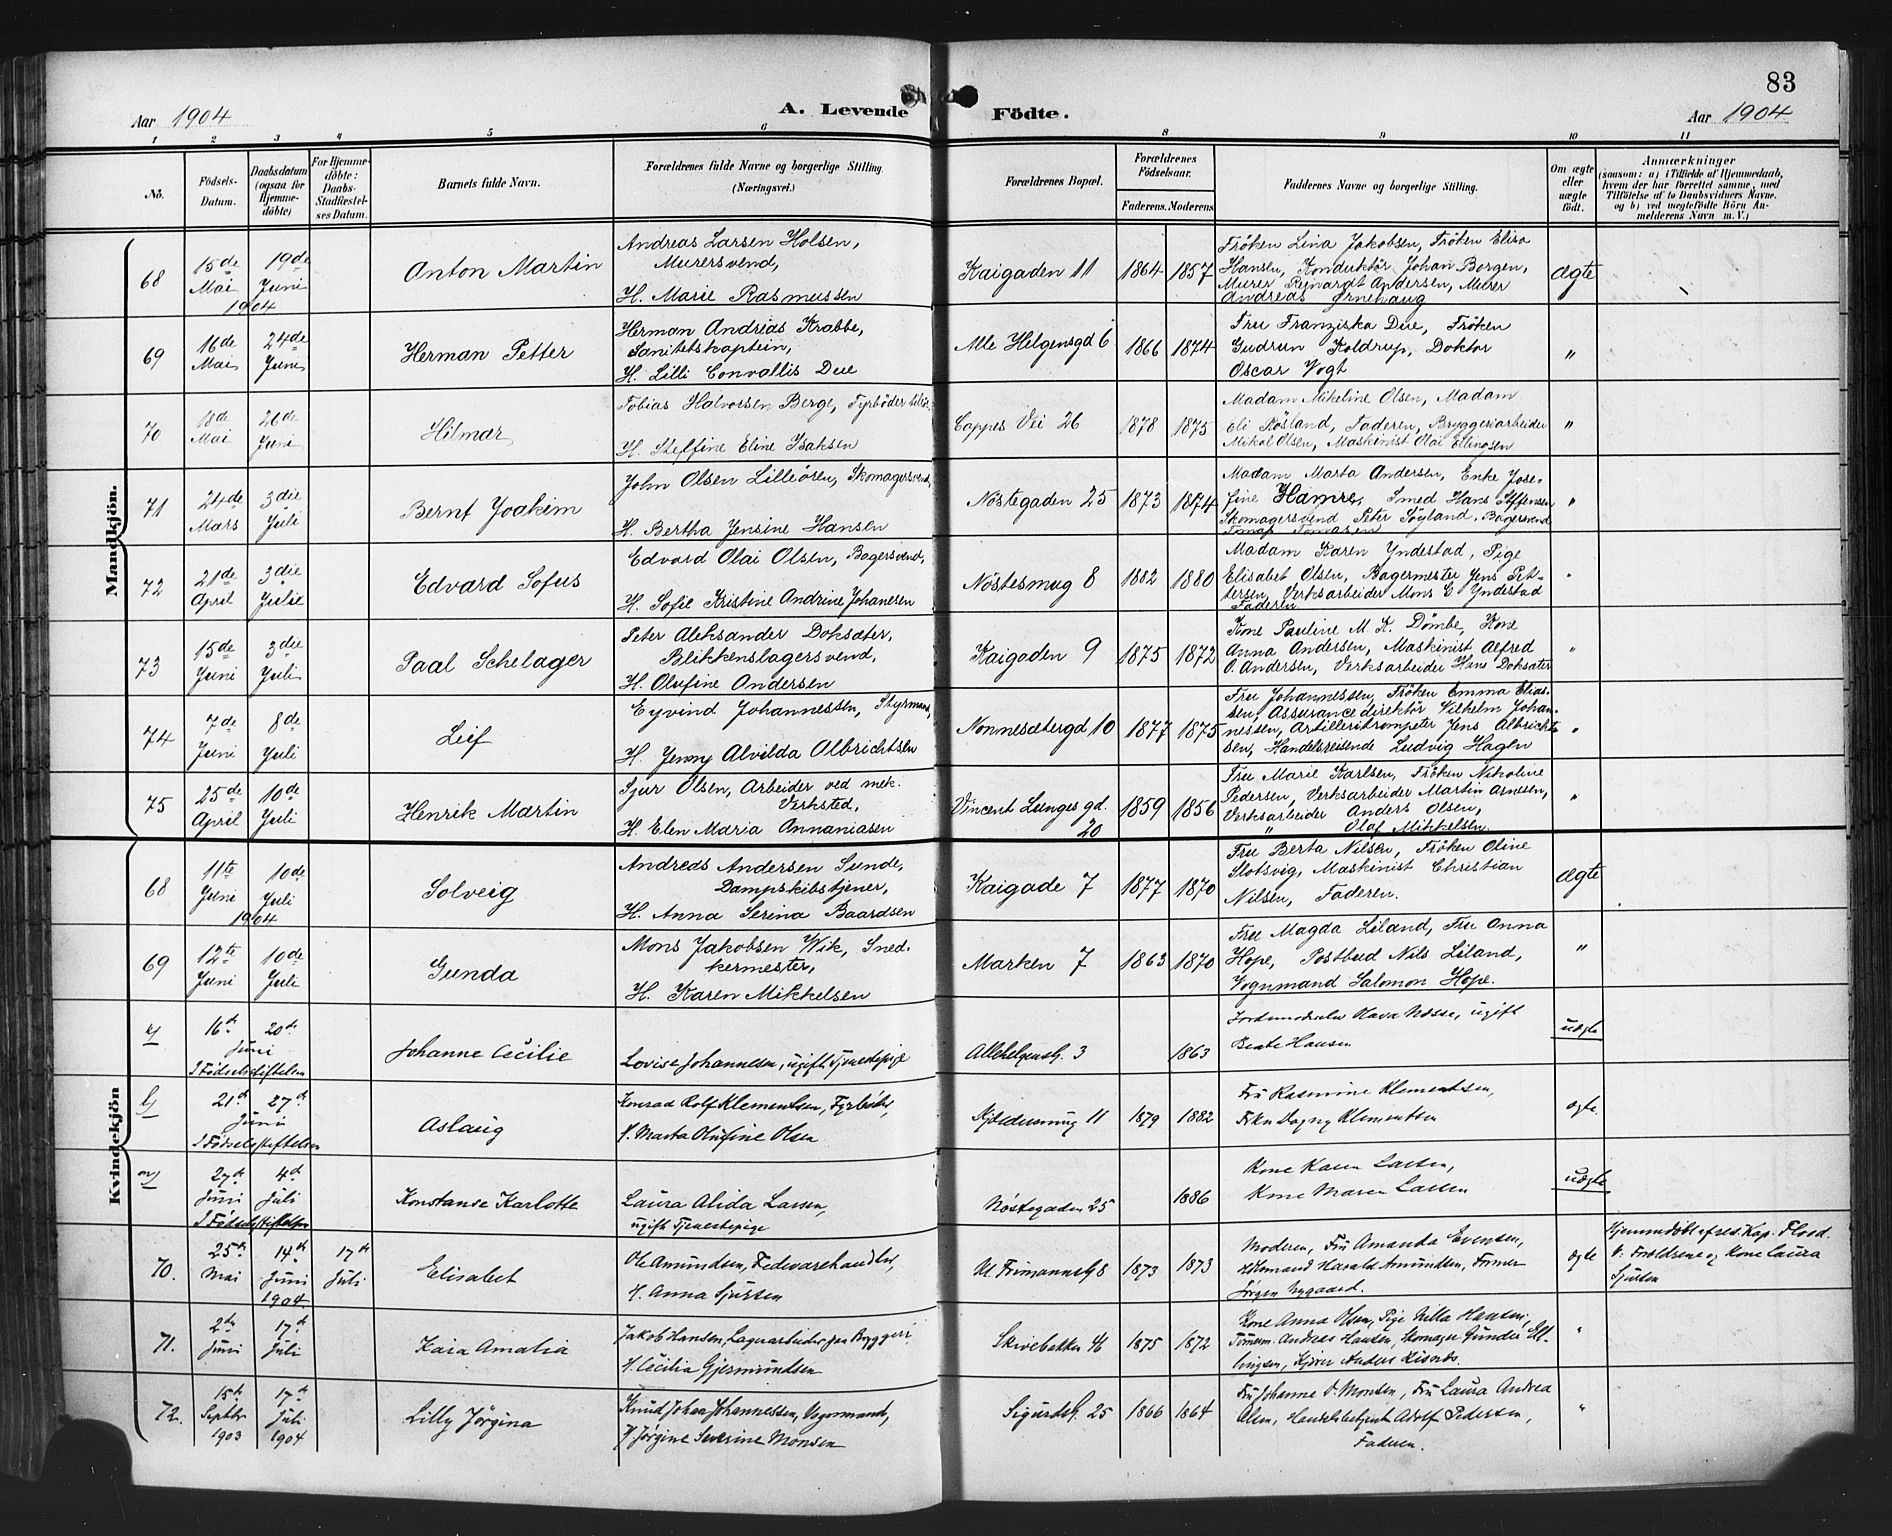 83
Aar 1904
A. Levende Födte.
Aar 1904
1 2 3 4 5 6 8 9 10 11
No.
Födsels-Datum.
Daabsdatum (ogsaa for Hjemmedöbte)
For Hjemmedöbte: Daabs-Stadfæstelses Datum.
Barnets fulde Navn.
Forældrenes fulde Navne og borgerlige Stilling. (Næringsvei.)
Forældrenes Bopæl.
Forældrenes Födselsaar.
Faderens. Moderens.
Faddernes Navne og borgerlige Stilling.
Om ægte eller uægte födt.
Anmærkninger
(saasom: a) i Tilfælde af Hjemmedaab,
hvem der har forrettet samme, med
Tilföielse af to Daabsvidners Navne,
og b) ved uægtefödte Börn Anmelderens Navn m. V.)
Mandkjön.
68 15de Mai 1904 19de Juni
Anton Martin
Andreas Larsen Holsen,
Murersvend,
H. Marie Rasmussen
Kaigaden 11 1864 1857
Fröken Lina Jakobsen, Fröken Elisa
Hansen, Konduktör Johan Borgen,
Murer Reinardt Andersen, Murer
Andreas Ørnehaug
Ægte
69 16de Mai 24de Juni
Herman Petter
Herman Andreas Krabbe,
Sanitetskaptein,
H. Lilli Convallis Due
Alle Helgensgd 6 1866 1874
Fru Franziska Due, Fröken
Gudrun Koldrup, Doktor
Oscar Vogt
"
70 18de Mai 26de Juni
Hilmar
Tobias Halvorsen Berge, Fyrböder
H. Steffine Eline Isaksen
Cappes Vei 26 1878 1875
Madam Mikeline Olsen, Madam
Eli Røsland, Faderen, Bryggeriarbeider
Mikal Olsen, Maskinist Olai Ellingsen
"
71 24de Mars 3die Juli
Bernt Joakim
John Olsen Lilleören, Skomagersvend,
H. Bertha Jensine Hansen
Nöstegaden 25 1873 1874
Madam Marta Andersen, Enke Josefine Hamre, Smed Hans Steffensen
Skomagersvend Peter Söyland, Bagersvend
Tomas Tomasen
"
72 21de April 3die Juli
Edvard Sofus
Edvard Olai Olsen, Bagersvend,
H. Sofie Kristine Andrine Johansen
Nöstesmug 8 1882 1880
Madam Karen Yndestad, Pige
Elisabet Olsen, Bagermester Jens Pettersen, Verksarbeider Mons E Yndestad
Faderen
"
73 15de Juni 3die Juli
Paal Schelager
Peter Aleksander Doksæter,
Blikkenslagersvend,
H. Olufine Andersen
Kaigaden 9 1875 1872
Kone Pauline M. K. Dömbe, Kone
Anna Andersen, Maskinist Alfred
O. Andersen, Verksarbeider Hans Doksæter
"
74 7de Juni 8de Juli
Leif
Eyvind Johannessen, Styrmand,
H. Jenny Alvilda Albrichtsen
Nonnesætergd 10 1877 1875
Fru Johannessen, Fröken Emma Eliassen, Assurancedirektör Vilhelm Johannessen, Artilleritrompeter Jens Albrichtsen, Handelsreisende Ludvig Hagen
"
75 25de April 10de Juli
Henrik Martin
Sjur Olsen, Arbeider ved mek.
Verksted,
H. Elen Maria Annaniasen
Vincent Lunges gd. 20 1859 1856
Fru Marie Karlsen, Fröken Nikoline
Pedersen, Verksarbeider Martin Arnesen,
Verksarbeider Anders Olsen,
" Olaf Mikkelsen.
"
Kvindekjön
68 11te Juni 1904 10de Juli
Solveig
Andreas Andersen Sunde,
Dampskibstjener,
H. Anna Serina Baardsen
Kaigade 7 1877 1870
Fru Berta Nilsen, Fröken Oline
Slotsvig, Maskinist Christian
Nilsen, Faderen.
Ægte
69 12te Juni 10de Juli
Gunda
Mons Jakobsen Wik, Snedkermester,
H. Karen Mikkelsen
Marken 7 1863 1870
Fru Magda Liland, Fru Anna
Hope, Postbud Nils Liland,
Vognmand Salomon Hope.
"
16de 20de Juni
I Födselsstiftelsen
Johanne Cecilie
Lovise Johannesen, ugift Tjenestepige
Allehelgensg. 3 1863
Jordemoderelev Hava Næsse, ugift
Beate Hansen
uægte
21de 27de Juni
I Födselsstiftelsen
Aslaug
Konrad Rolf Klementsen, Fyrböder,
H. Marta Olufine Olsen
11 1879 1882
Fru Rasmine Klementsen,
Frkn Dagny Klementsen
ægte.
27de Juni 4de Juli
I Födselsstiftelsen
Konstanse Karlotte
Laura Alida Larsen,
ugift Tjenestepige
Nöstegaden 25 1886
Kone Karen Larsen,
Kone Maren Larsen
uægte
70. 25de Mai 14de Juni 1904. 17de Juli
Elisabet
Ole Amundsen, Fedevarehandler,
H. Anna Sjursen
Nl. Frimannsg 8 1873 1873
Moderen, Fru Amanda Evensen,
Harald Amundsen, Former
Jörgen Nygaard.
ægte
Hjemmedöbt af res. Kap. Floed.
V: Forældrene og Kone Laura
Sjursen
71. 2den Juni 17de Juli
Kaia Amalia
Jakob Hansen, Lagerarbeider paa Bryggeri
H. Cecilia Gjermundsen
Skivebakken 46 1875 1872
Kone Anna Olsen, Pige Milla Hansen,
Tömmerm. Andreas Hansen, Skomager Gunder Ellingsen, Kjører Anders
"
72. 15de Septbr 1903 17de Juli 1904
Lilly Jörgina
Knud Johan Johannessen, Vognmand,
H. Jörgine Severine Monsen
Sigurdsg. 25 1866 1864
Fru Johanne O. Monsen, Fru Laura Andrea
Olsen, Handelsbetjent Adolf Pedersen,
Faderen.
"